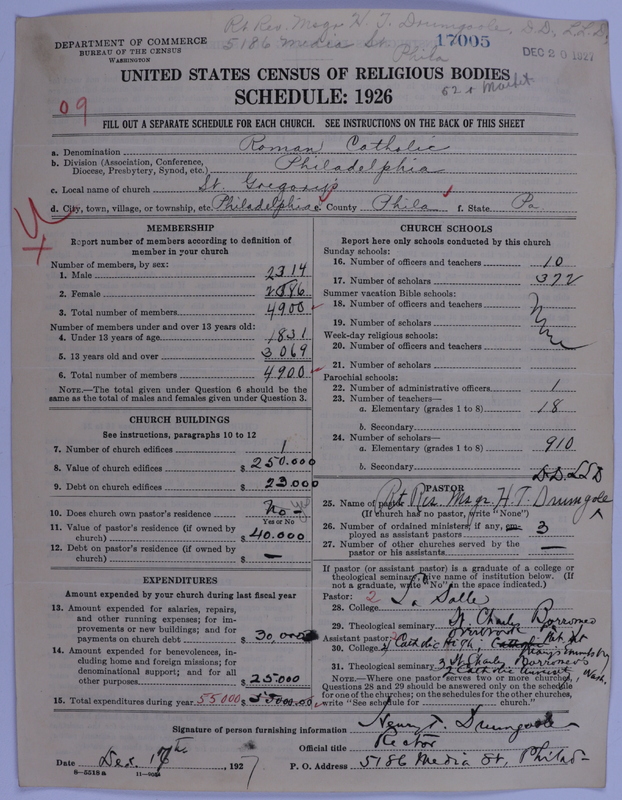 Rt Rev. Msgr H. T. Drumgoole, D.D., L.L.D.
5186 Media St.
Phila
17005
DEC 20 1927
62 & Market
DEPARTMENT OF COMMERCE
BUREAU OF THE CENSUS
WASHINGTON
UNITED STATES CENSUS OF RELIGIOUS BODIES
SCHEDULE: 1926
09
FILL OUT A SEPARATE SCHEDULE FOR EACH CHURCH. SEE INSTRUCTIONS ON THE BACK OF THIS SHEET
a. Denomination Roman Catholic
b. Division (Association, Conference, Diocese, Presbytery, Synod, etc.) Philadelphia
c. Local name of church St. Gregory's
d. City, town, village, or township, etc. Philadelphia e. County Phila f. State Pa
MEMBERSHIP
Report number of members according to definition of
member in your church
Number of members, by sex:
1. Male 2314
2. Female 2586
3. Total number of members 4900
Number of members under and over 13 years old:
4. Under 13 years of age 1831
5. 13 years old and over 3069
6. Total number of members 4900
NOTE.—The total given under Question 6 should be the
same as the total of males and females given under Question 3.
CHURCH BUILDINGS
See instructions, paragraphs 10 to 12
7. Number of church edifices 1
8. Value of church edifices $250.000
9. Debt on church edifices $23.000
10. Does church own pastor's residence No - yes
Yes or No
11. Value of pastor's residence (if owned by
church) $40.000
12. Debt on pastor's residence (if owned by
church) $ —
EXPENDITURES
Amount expended by your church during last fiscal year
13. Amount expended for salaries, repairs,
and other running expenses; for im-
provements or new buildings; and for
payments on church debt $30,000
14. Amount expended for benevolences, in-
cluding home and foreign missions; for
denominational support; and for all
other purposes $25000
15. Total expenditures during year 55000 $55000.00
CHURCH SCHOOLS
Report here only schools conducted by this church
Sunday schools:
16. Number of officers and teachers 10
17. Number of scholars 372
Summer vacation Bible schools:
18. Number of officers and teachers
19. Number of scholars
None
Week-day religious schools:
20. Number of officers and teachers
21. Number of scholars
Parochial schools:
22. Number of administrative officers 1
23. Number of teachers—
a. Elementary (grades 1 to 8) 18
b. Secondary
24. Number of scholars—
a. Elementary (grades 1 to 8) 910
b. Secondary
D.D. LLD
PASTOR
25. Name of pastor Rt Rev. Msgr. H. T. Drumgoole
(If church has no pastor, write "None")
26. Number of ordained ministers, if any, em-
ployed as assistant pastors 3
27. Number of other churches served by the
pastor or his assistants —
If pastor (or assistant pastor) is a graduate of a college or
theological seminary, give name of institution below. (If
not a graduate, write "No" in the space indicated.)
Pastor: 2
28. College La Salle
29. Theological seminary St. Charles Borromeo
Overbrook
Assistant pastor:
30. College 2 Catholic High,
31. Theological seminary 3 St Charles Borromeo's
Wash.
NOTE.—Where one pastor serves two or more churches,
Questions 28 and 29 should be answered only on the schedule
for one of the churches; on the schedules for the other churches,
write "See schedule for church."
Signature of person furnishing information Henry T. Drumgoole
Official title Rector
Date Dec. 17th, 1927 P. O. Address 5186 Media St, Philad-
8—5518a 11—9034